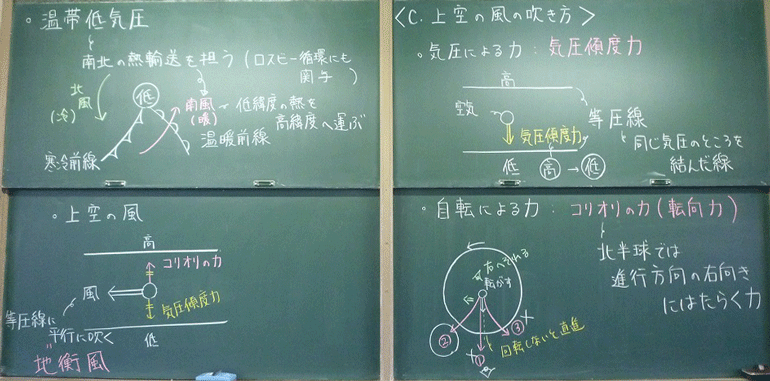 。温帯低気圧
南北の熱輸送を担う(ロスビー循環にも
関与)
北
風
(冷)
低
南風
(暖)
低緯度の熱を
高緯度へ運ぶ
温暖前線
寒冷前線
。上空の風
高
コリオリの力
風
気圧傾度力
等圧線に
平行に吹く
低
地衡風
<C.上空の風の吹き方>
。気圧による力:気圧傾度力
高
空気
等圧線
気圧傾度力
同じ気圧のところを
結んだ線
低 高→低
。自転による力:コリオリの力(転向力)
北半球では
進行方向の右向き
にはたらく力
右へそれる
転がす
② ① ③
回転しないと直進